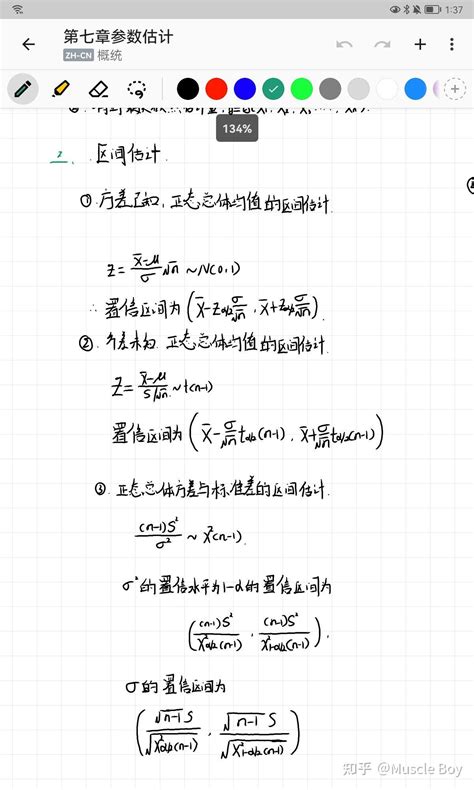 1:37
第七章参数估计
ZH-CN 概统
134%
2. 区间估计
① 方差已知, 正态总体均值的区间估计
Z = (X̄-μ)/σ √n ~ N(0,1)
∴ 置信区间为 (X̄-Zα/2 σ/√n , X̄+Zα/2 σ/√n)
② 方差未知 正态总体均值的区间估计
Z = (X̄-μ)/(S/√n) ~ t(n-1)
置信区间为 (X̄-σ/√n tα/2(n-1) , X̄+σ/√n tα/2(n-1))
③ 正态总体方差与标准差的区间估计
(n-1)S²/σ² ~ χ²(n-1)
σ²的置信水平为1-α的置信区间为
((n-1)S²/χ²α/2(n-1) , (n-1)S²/χ²1-α/2(n-1)) .
σ的置信区间为
(√n-1 S/√χ²α/2(n-1) , √n-1 S/√χ²1-α/2(n-1))
知乎 @Muscle Boy